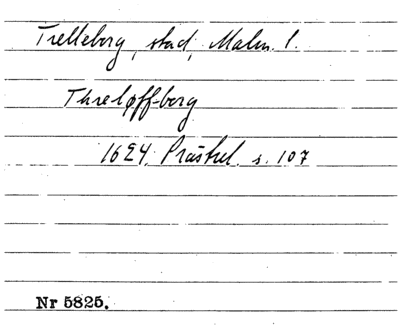 Trelleborg, stad, Malm. l.
Threløff-borg
1624. Prästrel. s. 107
Nr 5825.